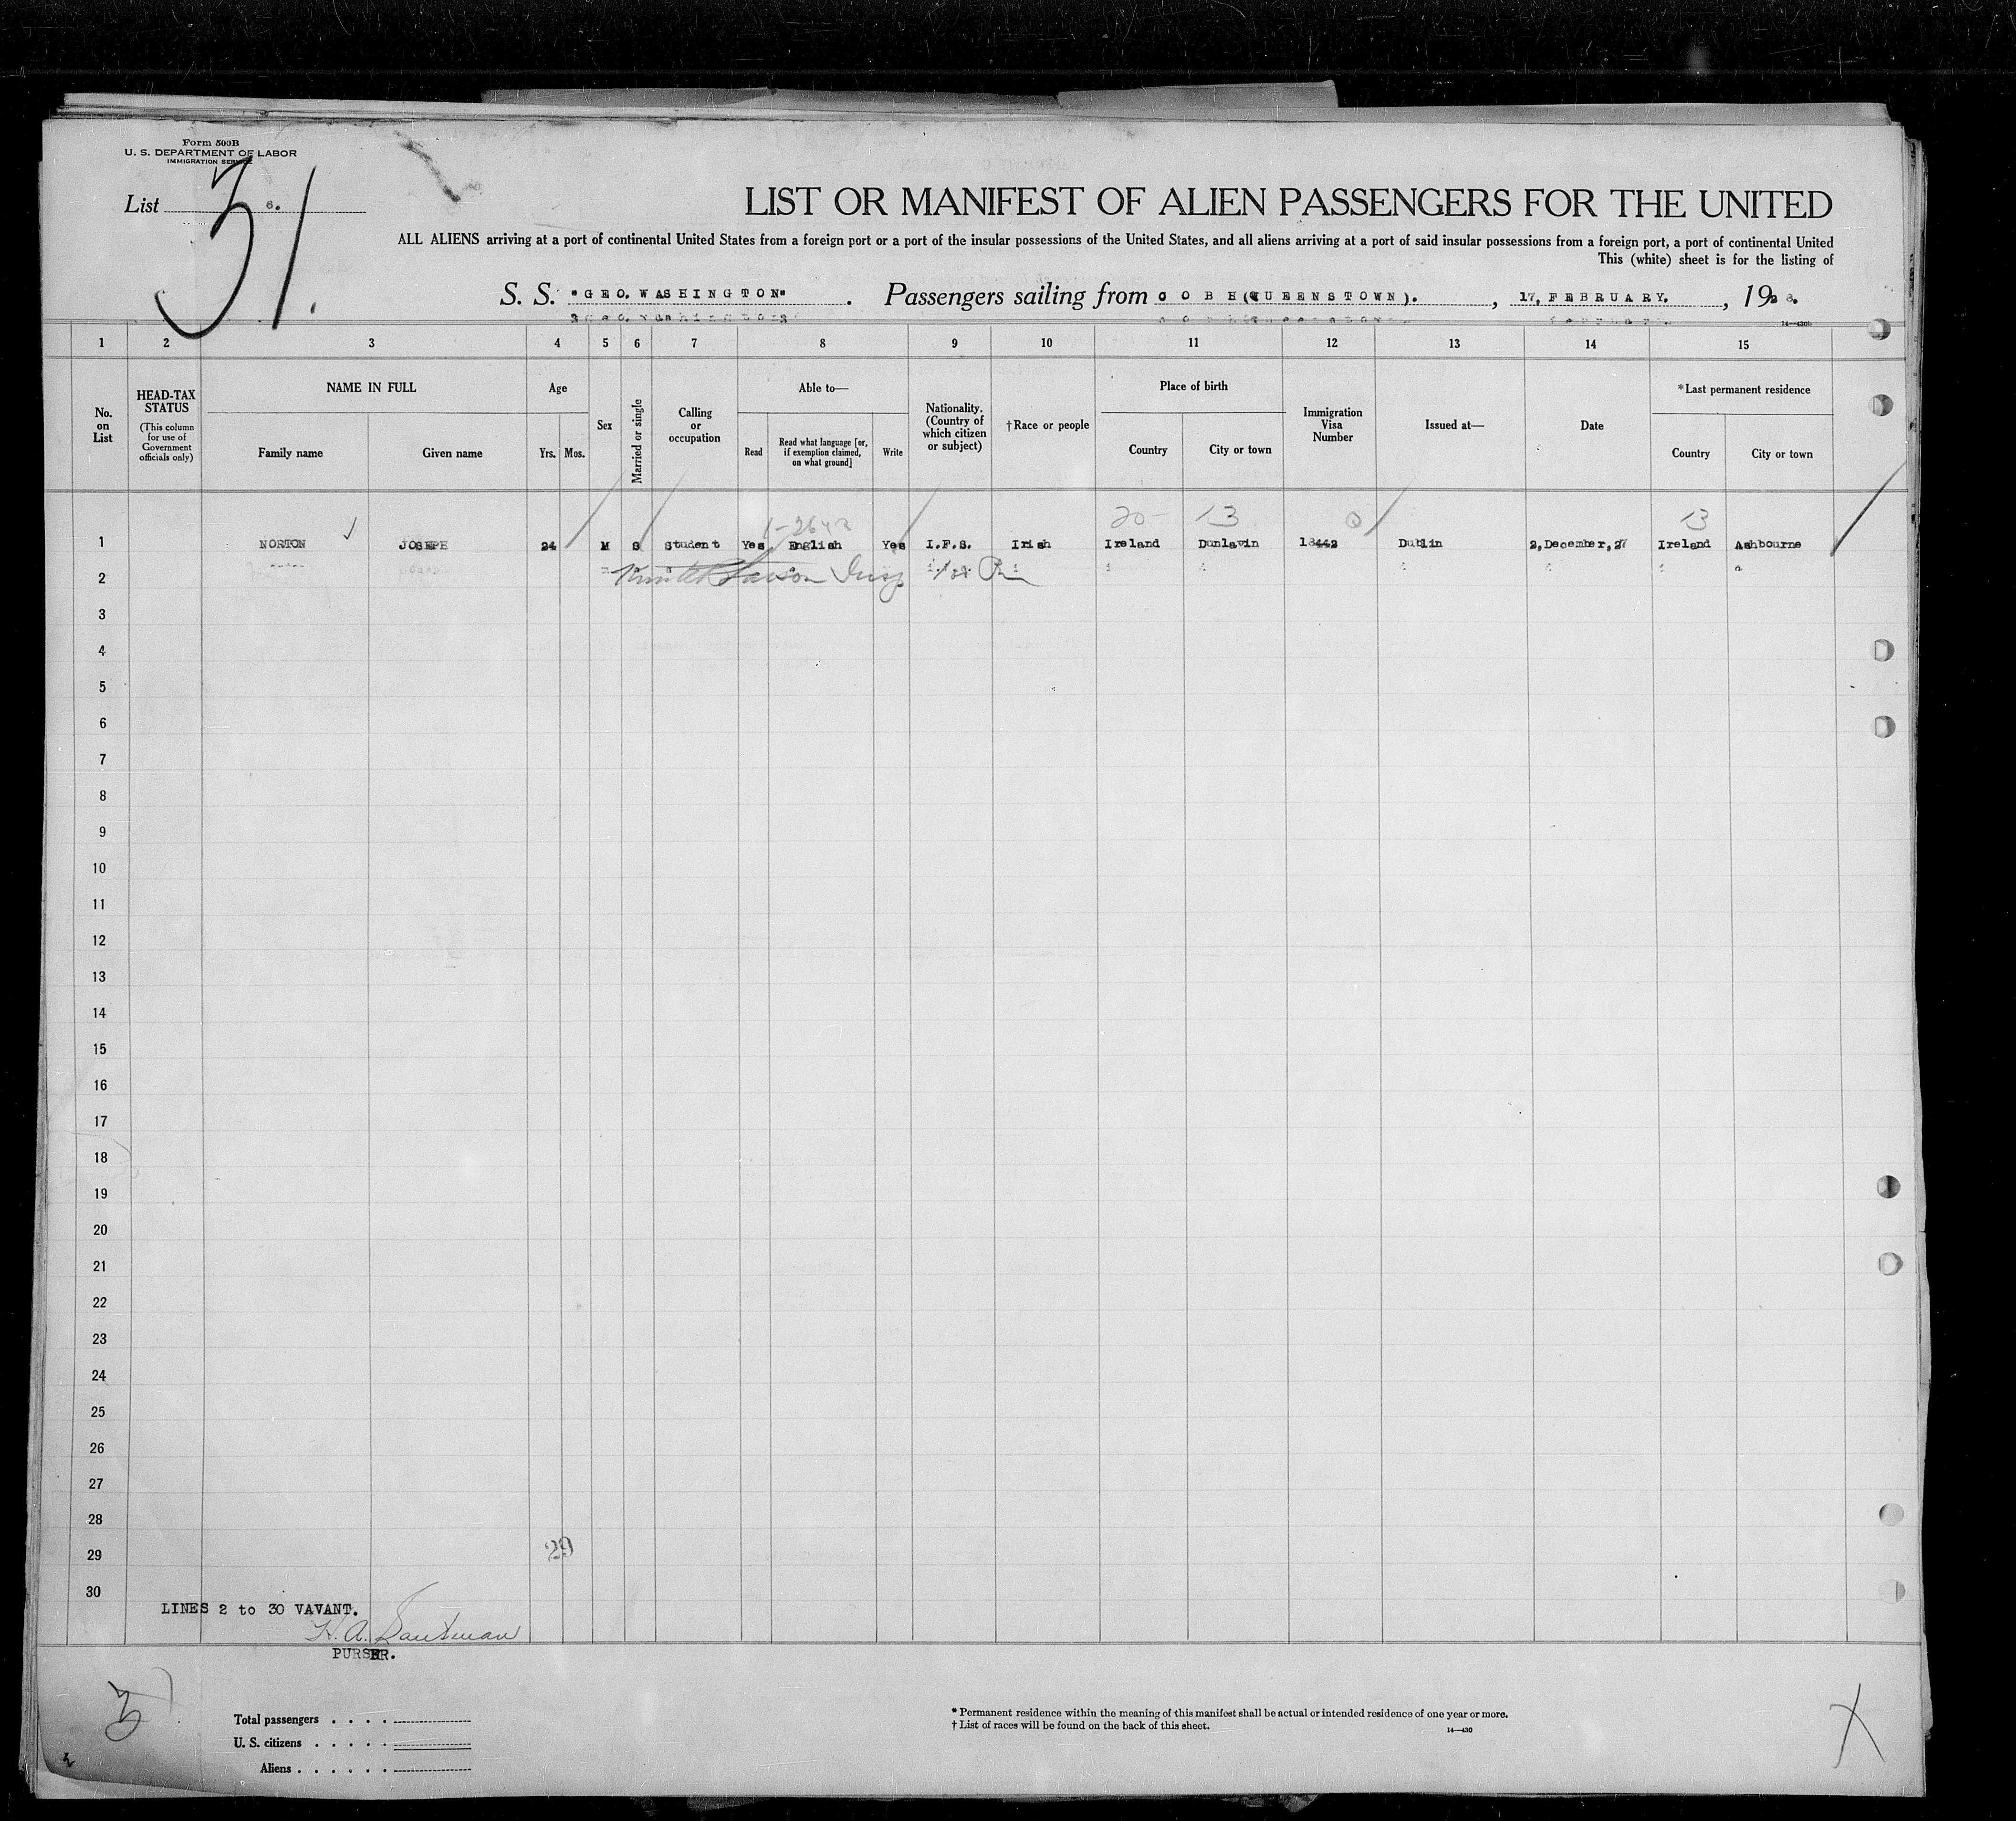 Form 500B
U. S. DEPARTMENT OF LABOR
IMMIGRATION SERVICE
List 6.
31.
LIST OR MANIFEST OF ALIEN PASSENGERS FOR THE UNITED
ALL ALIENS arriving at a port of continental United States from a foreign port or a port of the insular possessions of the United States, and all aliens arriving at a port of said insular possessions from a foreign port, a port of continental United
This (white) sheet is for the listing of
S. S. "GEO. WASHINGTON" . Passengers sailing from COBH (QUEENSTOWN). , 17, FEBRUARY. , 1928.
14—430b
1 2 3 4 5 6 7 8 9 10 11 12 13 14 15
No. on List
HEAD-TAX STATUS
(This column for use of Government officials only)
NAME IN FULL
Family name
Given name
Age
Yrs.
Mos.
Sex
Married or single
Calling or occupation
Able to—
Read
Read what language [or, if exemption claimed, on what ground]
Write
Nationality. (Country of which citizen or subject)
†Race or people
Place of birth
Country
City or town
Immigration Visa Number
Issued at—
Date
*Last permanent residence
Country
City or town
20 13 13
1 NORTON JOSEPH 24 M S Student Yes English Yes I.F.S. Irish Ireland Dunlavin 18442 Dublin 2,December,27 Ireland Ashbourne
2
3
4
5
6
7
8
9
10
11
12
13
14
15
16
17
18
19
20
21
22
23
24
25
26
27
28
29 29
30
LINES 2 to 30 VAVANT.
PURSER.
Total passengers . . . .
U. S. citizens . . . . .
Aliens . . . . . .
* Permanent residence within the meaning of this manifest shall be actual or intended residence of one year or more.
† List of races will be found on the back of this sheet.
14—430